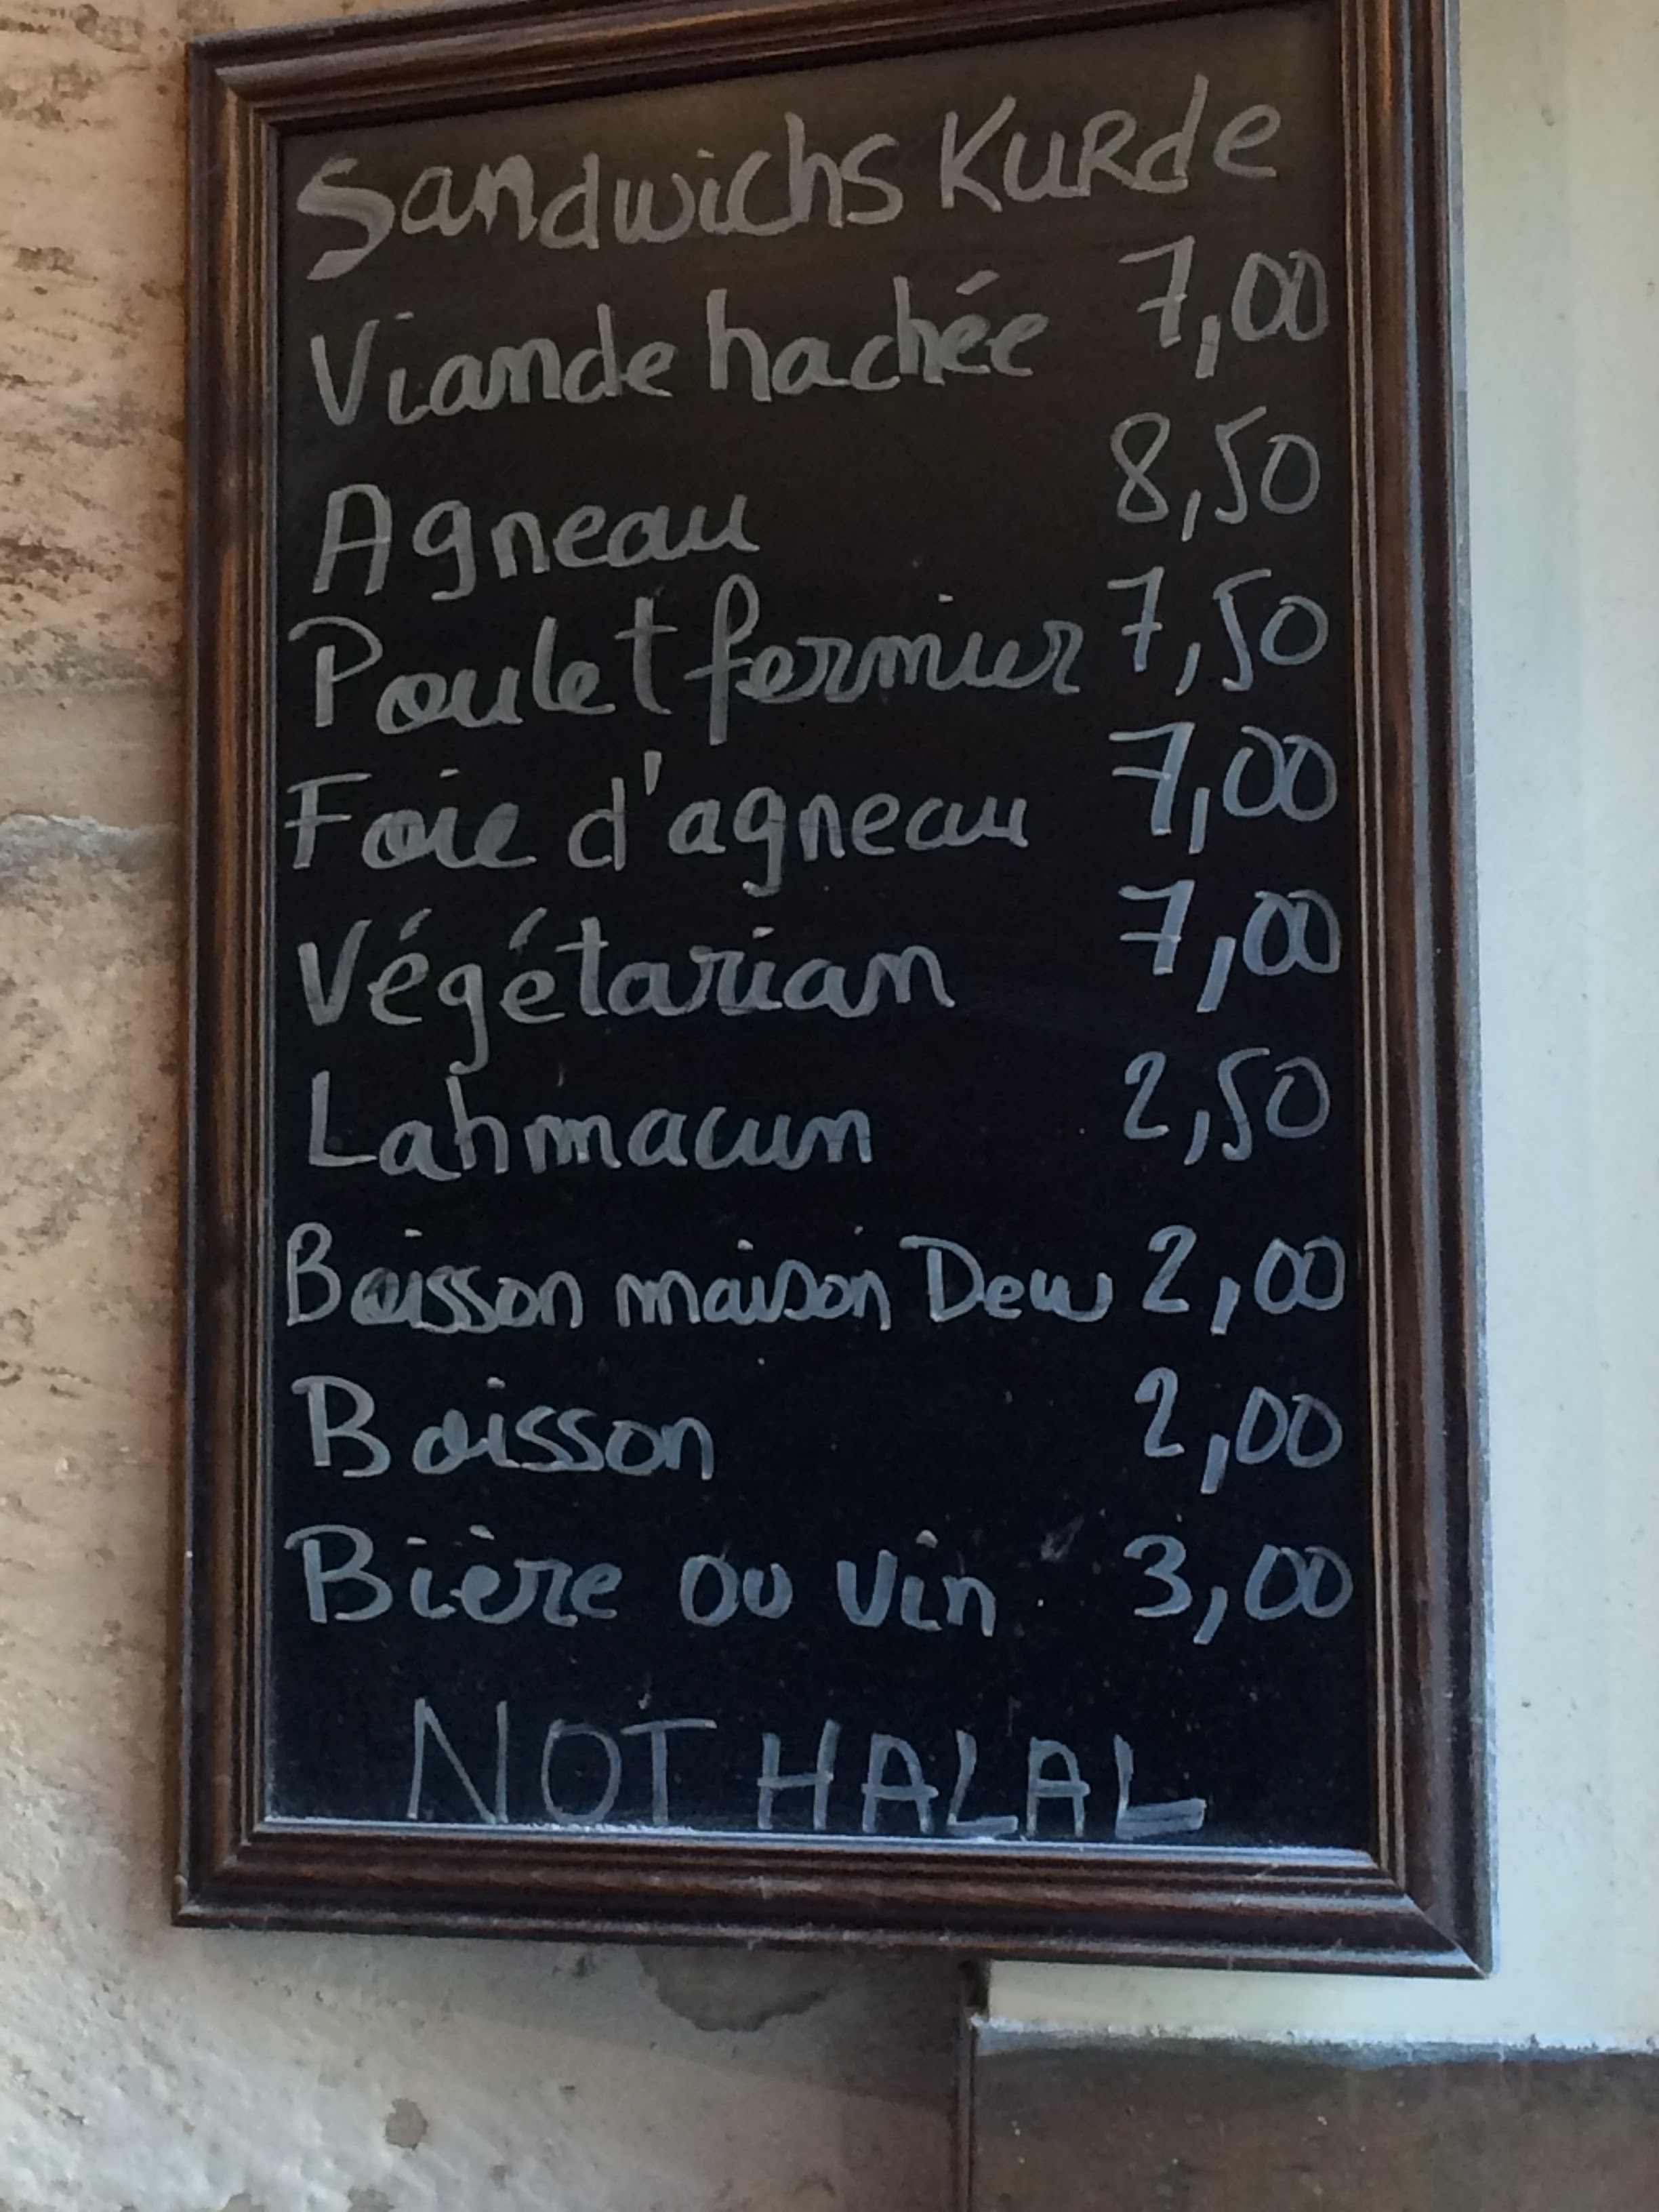 Sandwichs Kurde
Viande hachée 7,00
Agneau 8,50
Poulet fermier 7,50
Foie d'agneau 7,00
Végétarian 7,00
Lahmacun 2,50
Boisson maison Dew 2,00
Boisson 2,00
Bière ou vin 3,00
NOT HALAL